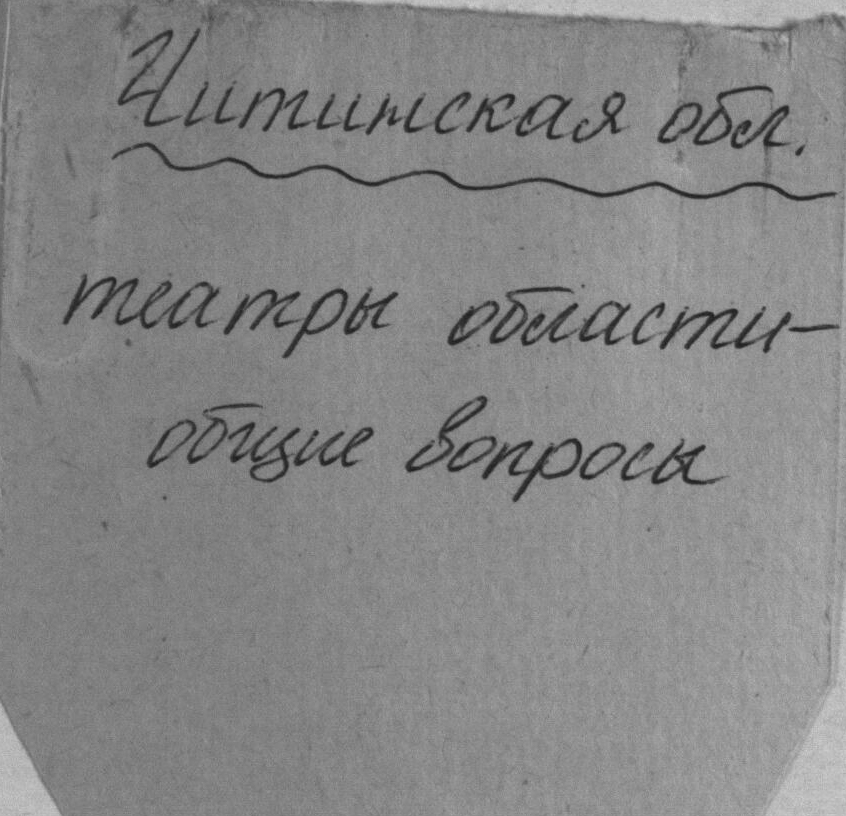 Читинская обл.
театры области–
общие вопросы